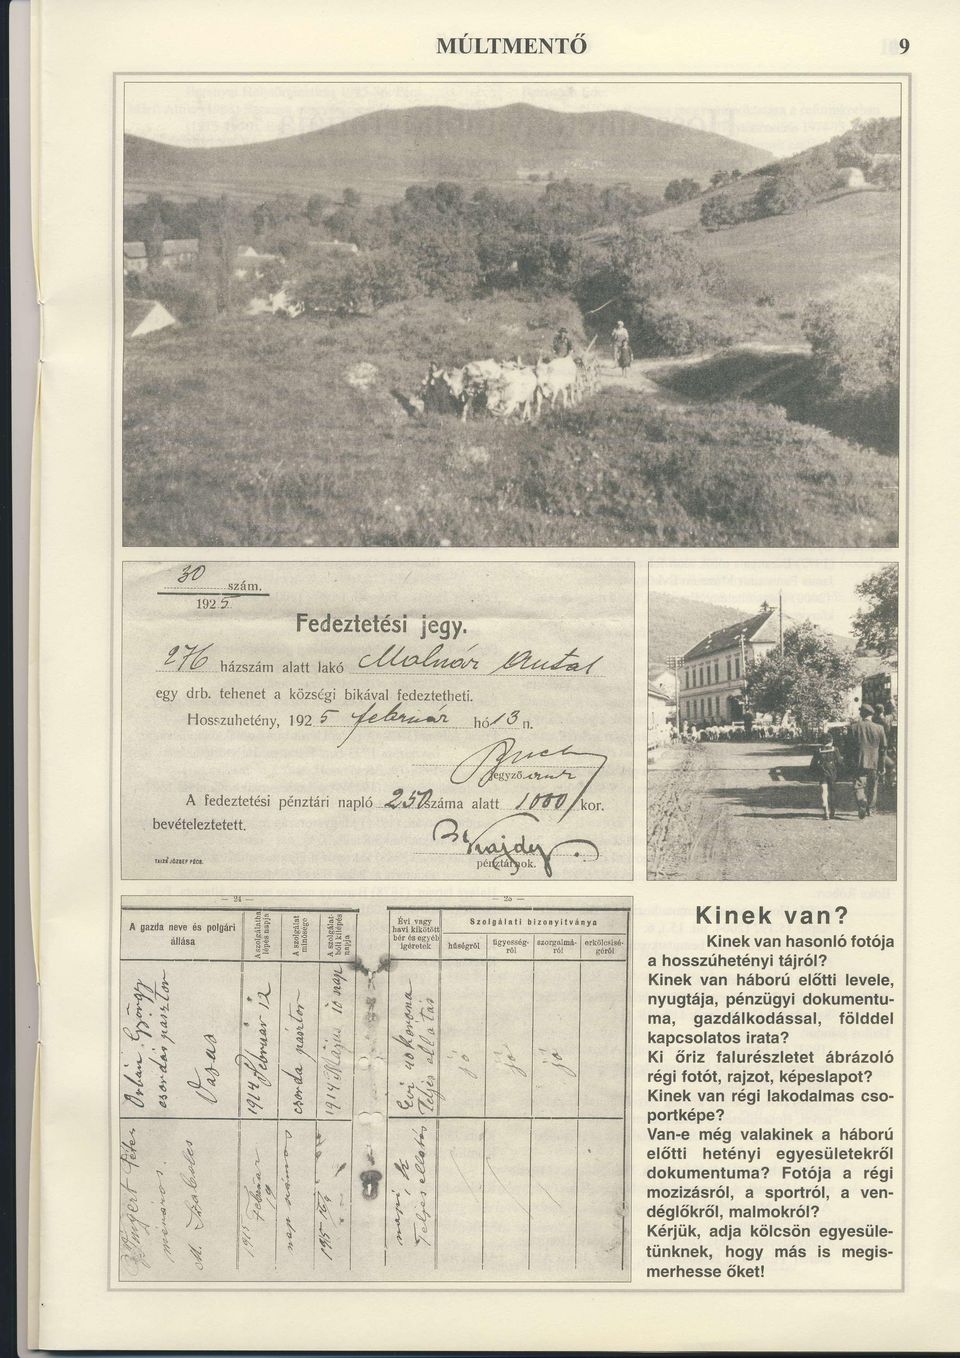 MÚLTMENTŐ 9
30 szám.
1925
Fedeztetési jegy.
276 házszám alatt lakó Molnár Antal
egy drb. tehenet a községi bikával fedeztetheti.
Hosszuhetény, 1925 február hó 13 n.
jegyző
A fedeztetési pénztári napló 25 száma alatt 1000 kor.
bevételeztetett.
pénztárnok.
TAIZS JÓZSEF PÉCS.
— 24 —
A gazda neve és polgári
állása
A szolgálatba
lépés napja
A szolgálat
minősége
A szolgálat-
bóli kilépés
napja
Orbán György
csordás pásztor
Vasas
1914 Február 12
csorda pásztor
1914 Május 10 nap
Péter
1915 Február
19
1915
— 25 —
Évi vagy
havi kikötött
bér és egyéb
igéretek
Szolgálati bizonyitványa
hűségről
ügyesség-
ről
szorgalmá-
ról
erkölcsisé-
géről
Évi 40 korona
Teljes ellátás
jó
jó
jó
napi 1 k
Teljes ellátás
Kinek van?
Kinek van hasonló fotója
a hosszúhetényi tájról?
Kinek van háború előtti levele,
nyugtája, pénzügyi dokumentu-
ma, gazdálkodással, földdel
kapcsolatos irata?
Ki őriz falurészletet ábrázoló
régi fotót, rajzot, képeslapot?
Kinek van régi lakodalmas cso-
portképe?
Van-e még valakinek a háború
előtti hetényi egyesületekről
dokumentuma? Fotója a régi
mozizásról, a sportról, a ven-
déglőkről, malmokról?
Kérjük, adja kölcsön egyesüle-
tünknek, hogy más is megis-
merhesse őket!